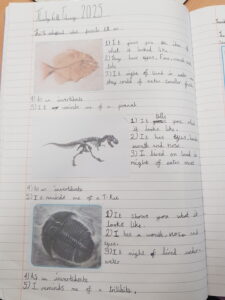 2025
1) It gives you an idea of
what it looked like.
2) They have eyes, Fins, mouth and
tail.
3) It might of lived in water
they could of eaten smaller fish.
4) As an invertibrate
5) It reminds me of a peanut
1) It tells you what
it looks like.
2) It has eyes,
mouth and nose.
3) It lived on land
might of eaten meat
4) As an invertibrate
5) It reminds me of a T-Rex
1) It shows you what it
looks like.
2) It has a mouth, nose and
eyes.
3) It might of lived under
water.
4) As an invertibrate
5) I reminds me of a trilobite.